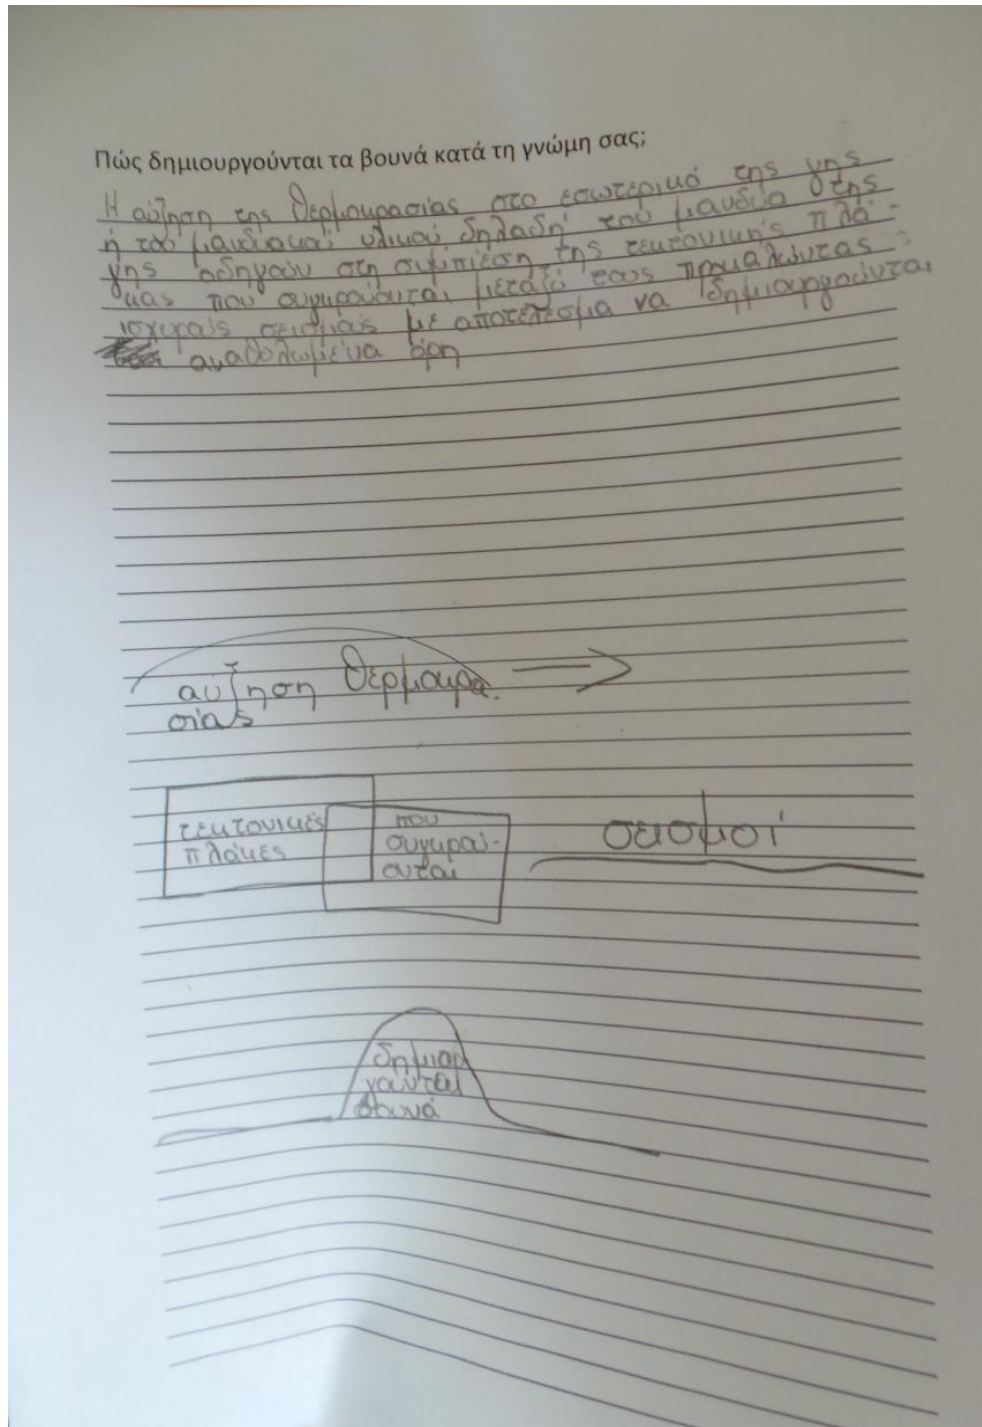 Πώς δημιουργούνται τα βουνά κατά τη γνώμη σας;
Η αύξηση της θερμοκρασίας στο εσωτερικό της γης
ή του μανδιακού υλικού δηλαδή του μανδύα της
γης οδηγούν στη συμπίεση της τεκτονικής πλά-
κας που συγκρούονται μεταξύ τους προκαλώντας
ισχυρούς σεισμούς με αποτέλεσμα να δημιουργούνται
αναθολωμένα όρη
αύξηση θερμοκρα-
σίας
τεκτονικές
πλάκες
που
συγκρού-
ονται
σεισμοί
δημιου
γούνται
βουνά